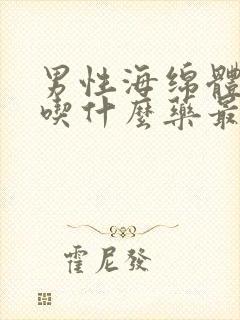 男性海绵體
喫什麼藥最
霍尼發